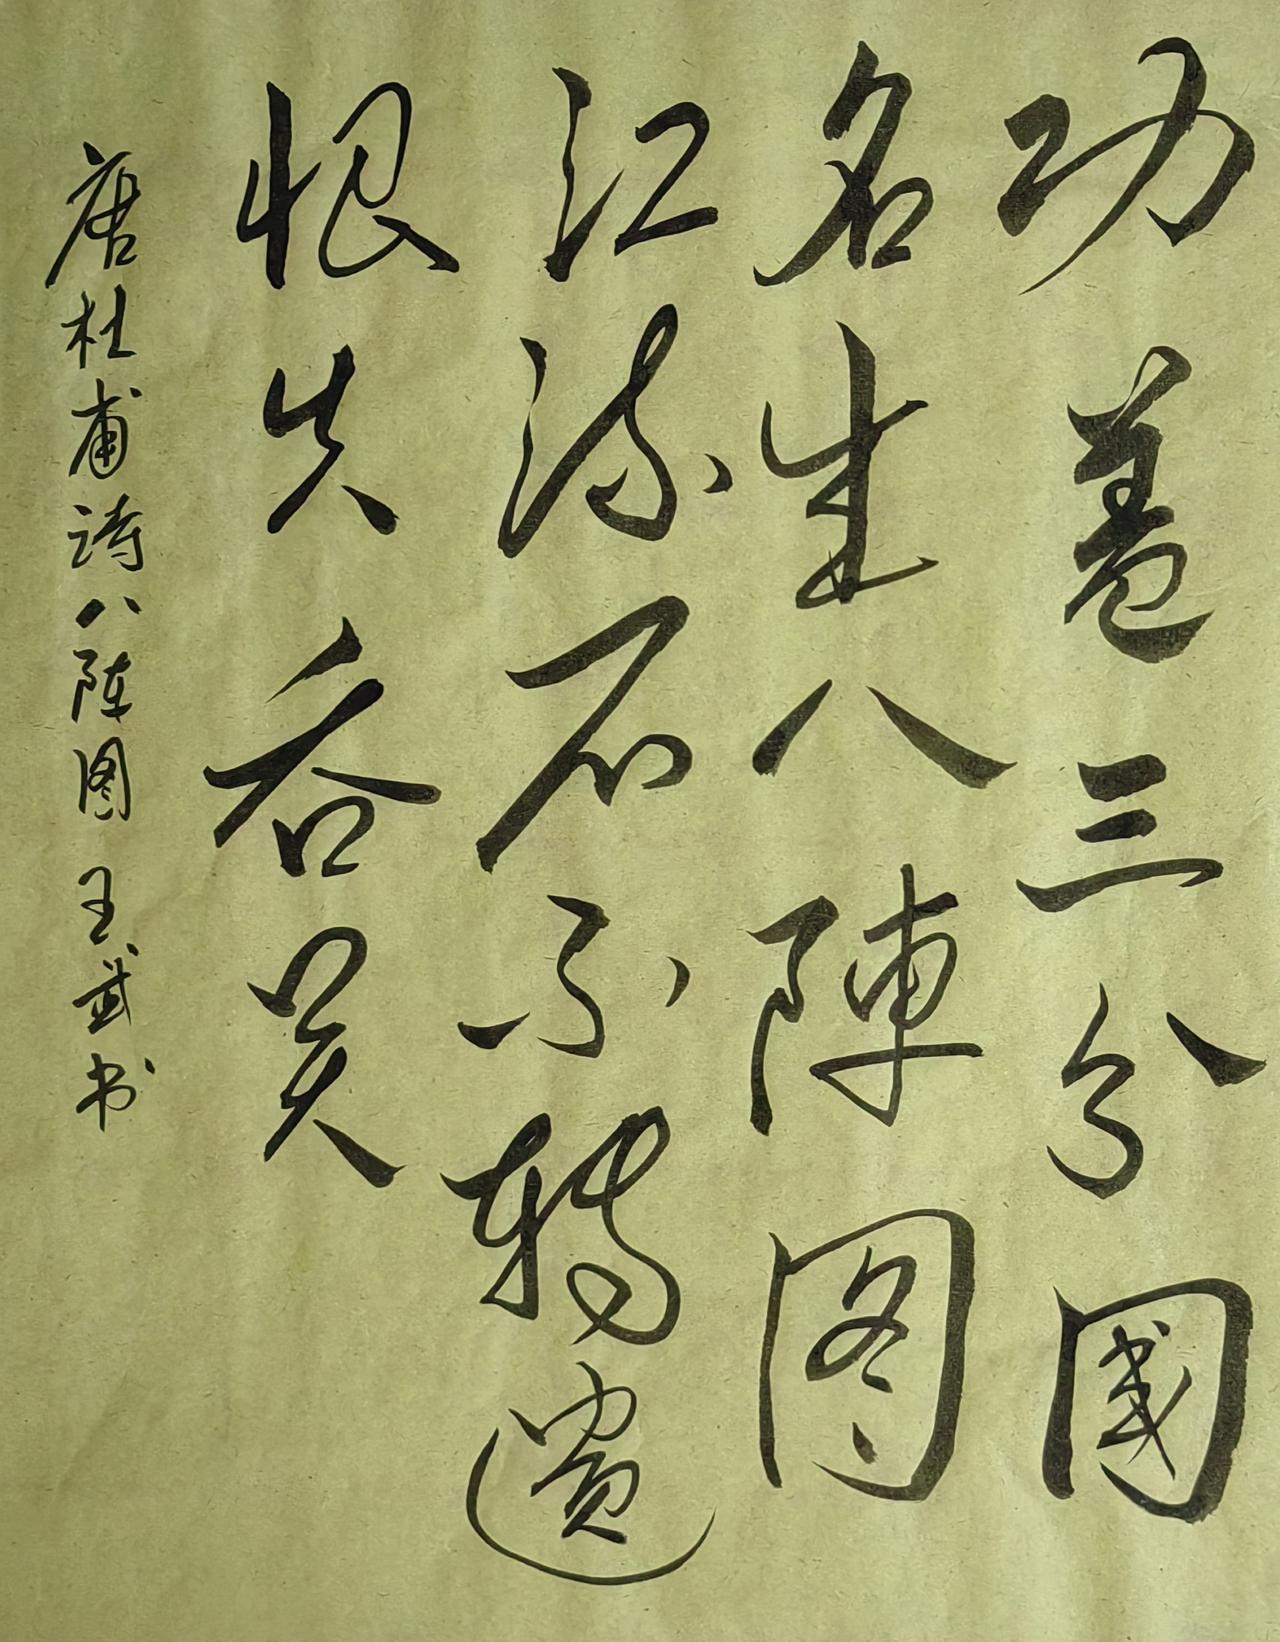 功盖三分國
名生八陣图
江流石不转遗
恨失吞吴
唐杜甫诗八阵图 王武书